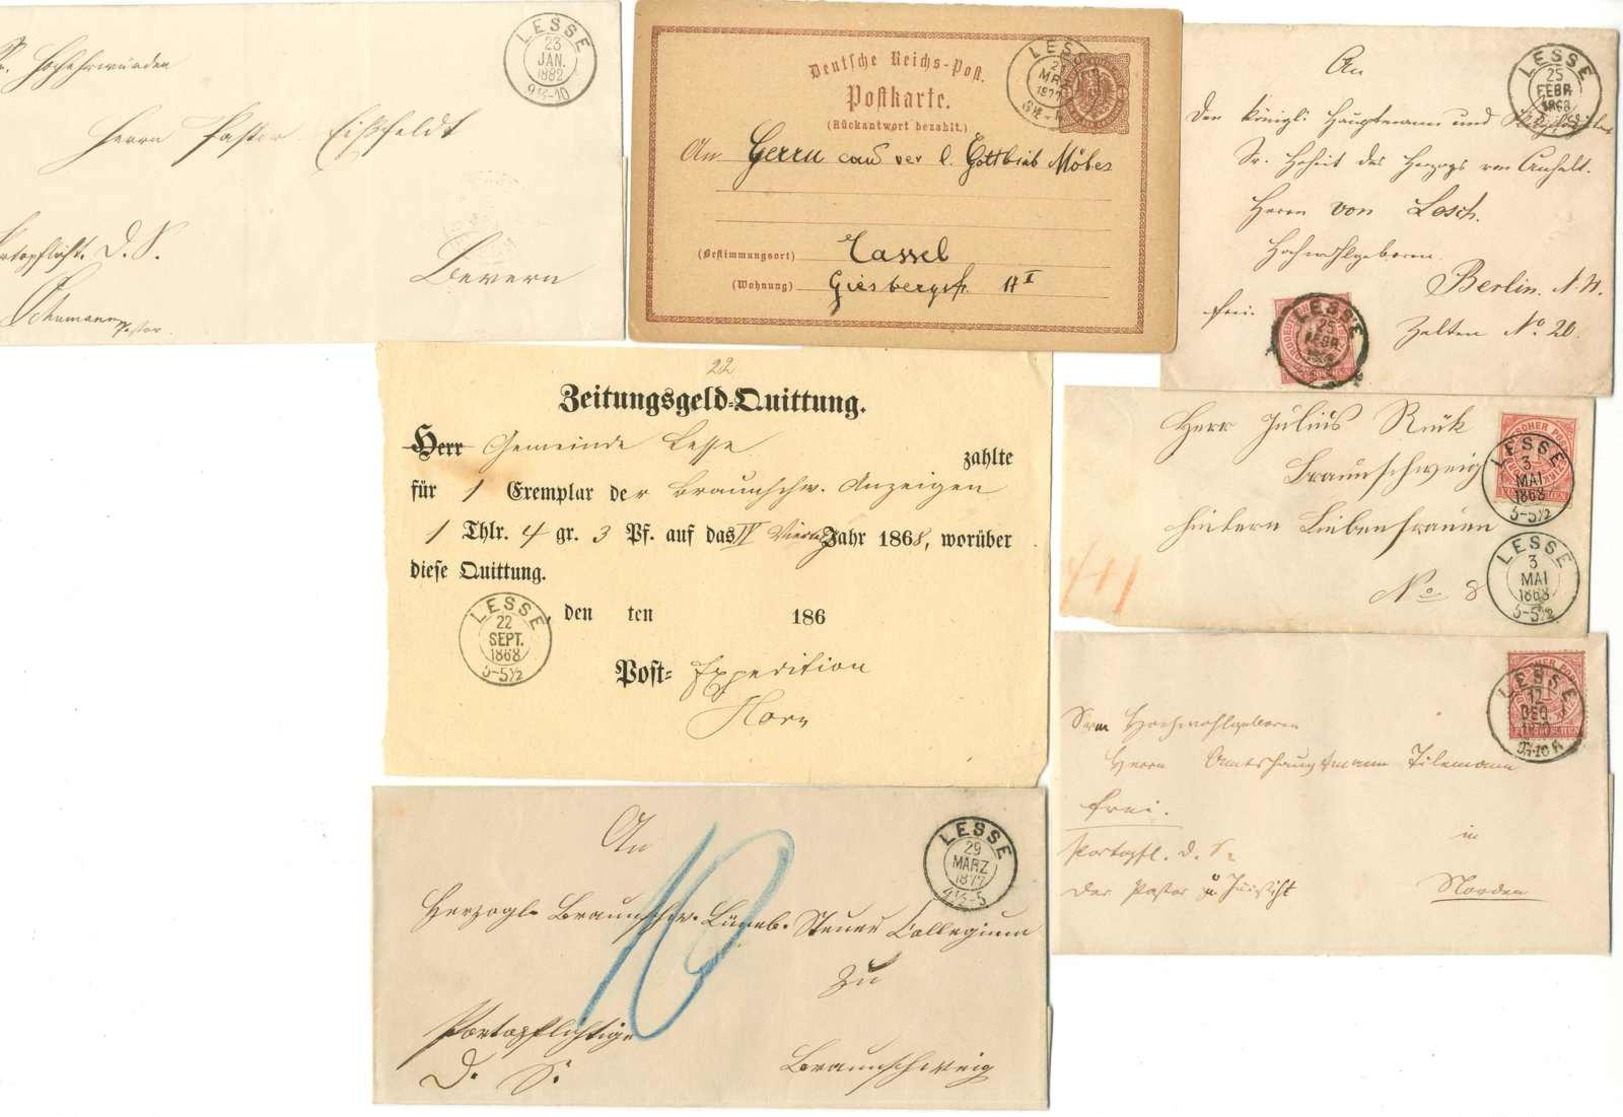 LESSE
23
JAN.
1882
9½-10
Herrn Pastor Eißfeldt
D. S.
Bevern
Schumann, Pastor.
Deutsche Reichs-Post.
Postkarte.
(Rückantwort bezahlt.)
An
Gottlieb Möbes
(Bestimmungsort) Cassel
(Wohnung)
LESSE
1877
An
den Königl. Hauptmann und
Sr. Hoheit des Herzogs von Anhalt.
Herrn von Losch.
Hochwohlgeboren
Berlin. N.W.
frei. Zelten No. 20.
LESSE
25
FEBR.
1868
LESSE
25
FEBR.
22
Zeitungsgeld-Quittung.
Herr Gemeinde Lesse zahlte
für 1 Exemplar der Braunschw. Anzeigen
1 Thlr. 4 gr. 3 Pf. auf das IV Viertel Jahr 1868, worüber
diese Quittung.
LESSE
22
SEPT.
1868
5-5½
, den ten 186
Post-Expedition
Horn
Herr Julius Rück
Braunschweig
hintern Liebenfrauen
No 8
LESSE
3
MAI
1868
5-5½
LESSE
3
MAI
1868
5-5½
Hochwohlgeboren
Herrn Amtshauptmann Tilemann
frei.
in
Portopfl. D. S.
Der Pastor
Norden
LESSE
12
DEC.
1870
An
Herzogl. Braunschw. Lüneb. Steuer Collegium
zu
Portopflichtige
D. S.
Braunschweig
10
LESSE
29
MÄRZ
1877
4½-5